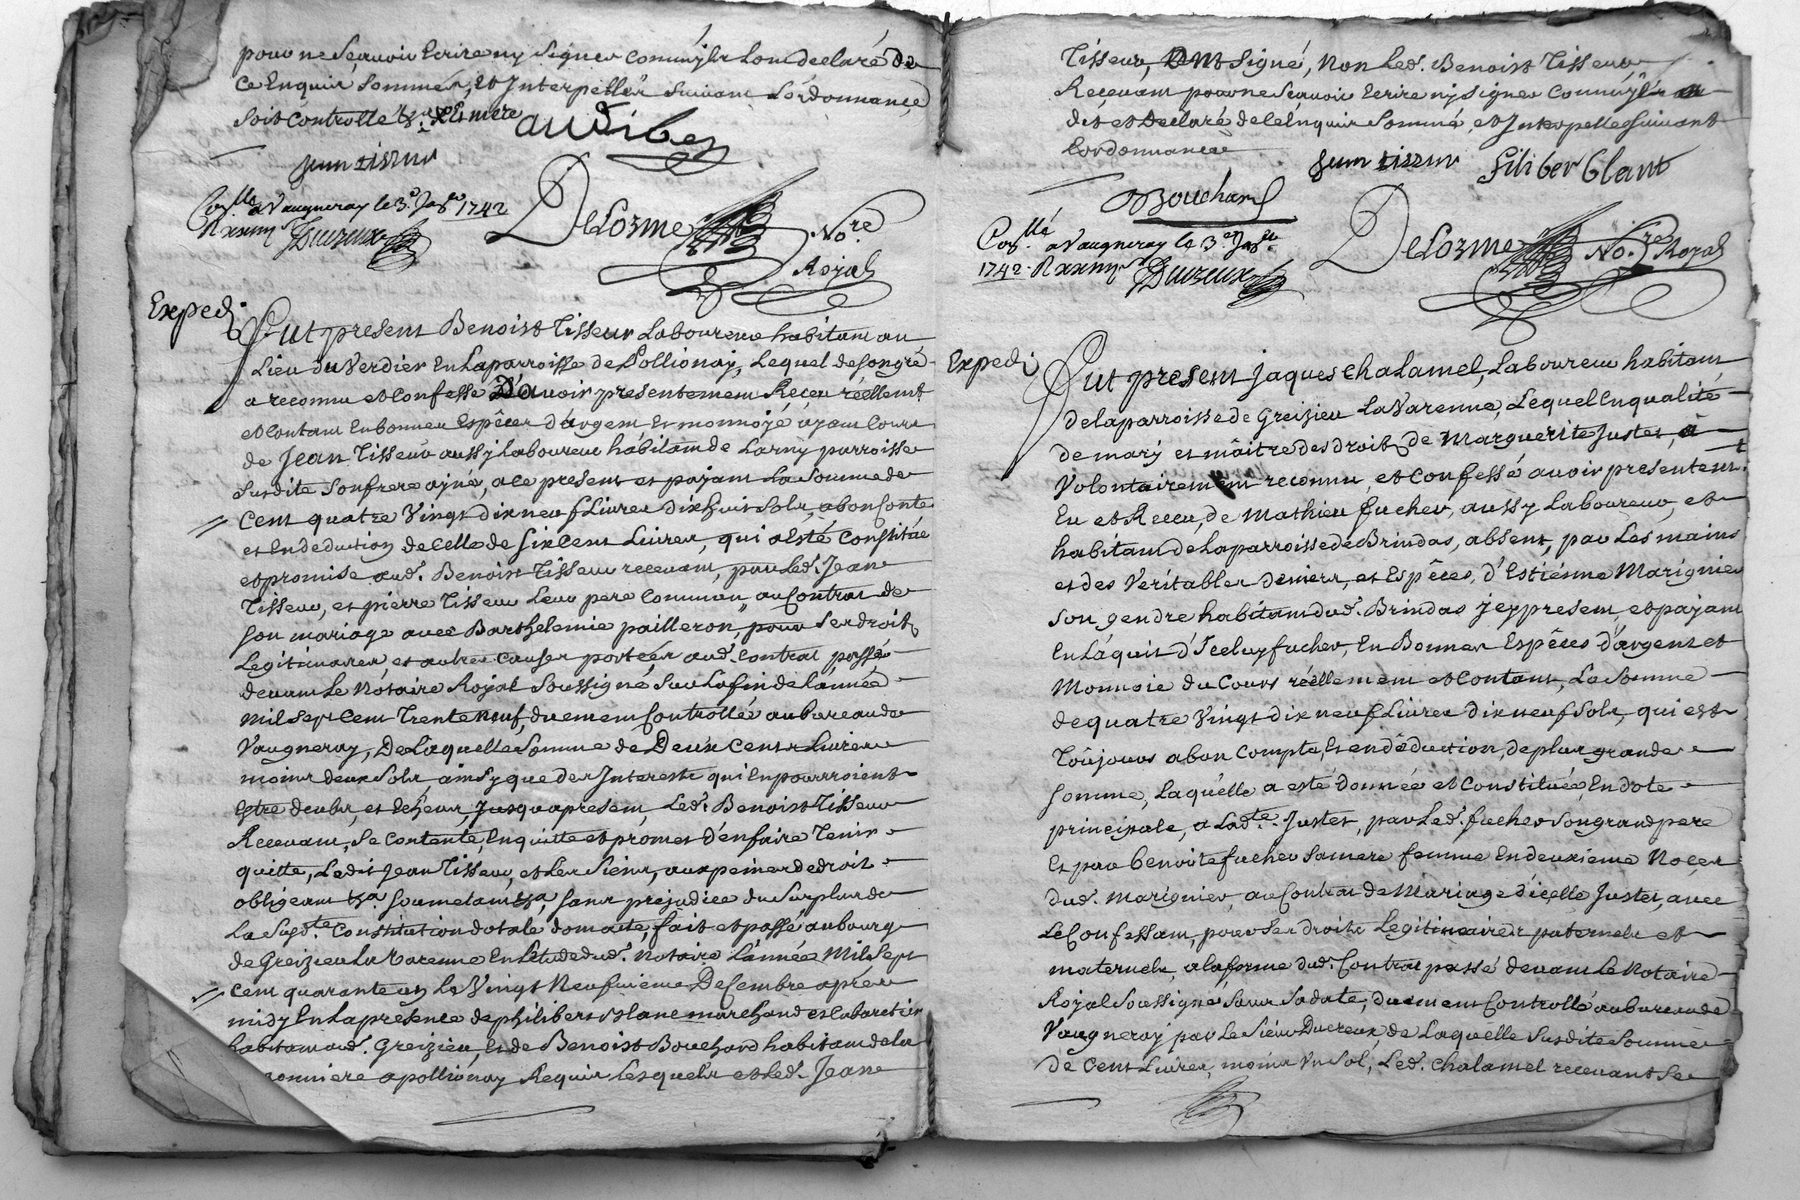 pour ne sçavoir Ecrire ny signer comm'jls l'ont declaré de
ce Enquis sommés, et Interpellés suivant L'ordonnance,
soit Controllé
audiber
jean tisseur
Con.lle a Vaugneray le 3.e Ja.er 1742
Ducreux
Delorme No.re
Royal
Expedi.
Fut present Benoist Tisseur Laboureur habitant au
Lieu du Verdier En La parroisse de Pollionay, Lequel de son gré
a reconnu et confessé D'avoir presentement Receu réellemt
et Contant En bonnes Espêces d'argent Et monnoyé ayant Cours
de Jean Tisseur aussy Laboureur habitant de Larny parroisse
susdite son frere ajné, a ce present et pajant La somme de
Cent quatre Vingt dix neuf Livres dix huit sols, a bon Conte
et En deduction de Celle de six Cent Livres, qui a Esté Constituée
et promise aud. Benoist Tisseur recevant, par Led. Jean
Tisseur, et pierre Tisseur Leur pere Commun, au Contrat de
son mariage avec Barthelemie pailleron, pour ses droits
Legitimaires et autres Causes portées aud. Contrat passé
devant Le Notaire Royal Soussigné sur La fin de L'année
Mil sept Cent Trente neuf, duement Controllé au bureau de
Vaugneray, De Laquelle somme de Deux Cents Livres
moins deux sols ainsy que des Interests qui En pourroient
Estre deubs, et Echeus, Jusqu'a present, Led. Benoist Tisseur
Recevant, se Contente, En quitte et promet d'En faire Tenir
quitte, Ledit Jean Tisseur, et Les siens, aux peines de droit
obligeant &a. soumetant &a, sans prejudice du surplus de
La susd.te Constitution dotale domaite, fait et passé au bourg
de Greizieu La Varenne En L'etude dud. Notaire L'année Mil sept
cent quarante un Le Vingt Neufvieme Decembre après
midy En La presence de philibert blanc marchand et Cabaretier
habitant aud. Greizieu, Et de Benoist Bouchard habitant de la
a pollionay Requis Lesquels et Led. Jean
Tisseur, ont signé, Non Led. Benoist Tisseur
Recevant pour ne sçavoir Ecrire ny signer comm'jl a
dit et declaré de ce Enquis sommé, et Interpellé suivant
L'ordonnance
jean tisseur filiber blant
Bouchard
Con.llé a Vaugneray le 3.e Ja.er
1742. Ducreux
Delorme No.re Royal
Expedi.
Fut present Jaques Chalamel, Laboureur habitant
de la parroisse de Greizieu La Varenne, Lequel En qualité
de mary et maître des droits de Marguerite Juster, a
Volontairement reconnu, et Confessé avoir presentemt.
Eu et Receu, de Mathieu fucher, aussy Laboureur, et
habitant de La parroisse de Brindas, absent, par Les mains
et des Veritables deniers, et Espêces, d'Estienne Marignier
son gendre habitant dud. Brindas jcy present, et pajant
En L'áquit d'Jceluy fucher, En Bonnes Espêces d'argent et
Monnoie du Cours réellement et Contant, La somme
de quatre Vingt dix neuf Livres dix neuf sols, qui est
Toûjours a bon Compte, Et en dêduction, de plus grande
somme, Laquelle a esté donnée et Constituée, En dote
principale, a Lad.te Juster, par Led. fucher son grand pere
Et par benoite fucher sa mere femme En deuxieme Noces
dud. Marignier, au Contrat de Mariage d'icelle Juster, avec
Le Confessant, pour ses droits Legitimaires paternels et
maternels, a la forme dud. Contrat passé devant Le Notaire
Royal Soussigné, sous sa date, duement Controllé au bureau de
Vaugneray par Le sieur Ducreux, de Laquelle susdite somme
de Cent Livres, moins Un sol, Led. Chalamel recevant se